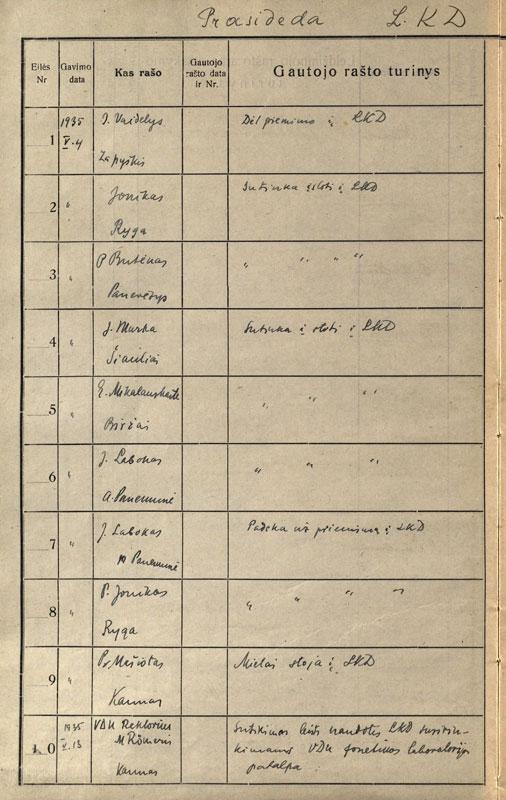 Prasideda L.KD
Eilės Nr
Gavimo data
Kas rašo
Gautojo rašto data ir Nr.
Gautojo rašto turinys
1 1935 V.4 J. Vaidelys Dėl priėmimo į LKD
Zapyškis
2 " Jonikas Sutinka įstoti į LKD
Ryga
3 " P Butėnas " " " "
Panevėžys
4 " J. Murka Sutinka į stoti į LKD
Šiauliai
5 " E. Mikalauskaitė " " "
Biržai
6 " J. Labokas " " "
A. Panemunė
7 " J. Labokas Padėka už priėmimą į LKD
Panemunė
8 " P. Jonikas " " " "
Ryga
9 " Pr Mašiotas Mielai stoja į LKD
Kaunas
10 1935 V.13 VDU Rektorius Sutikimas leisti naudotis LKD susirin-
M Römeris kimams VDU fonetikos laboratorijos
Kaunas patalpa